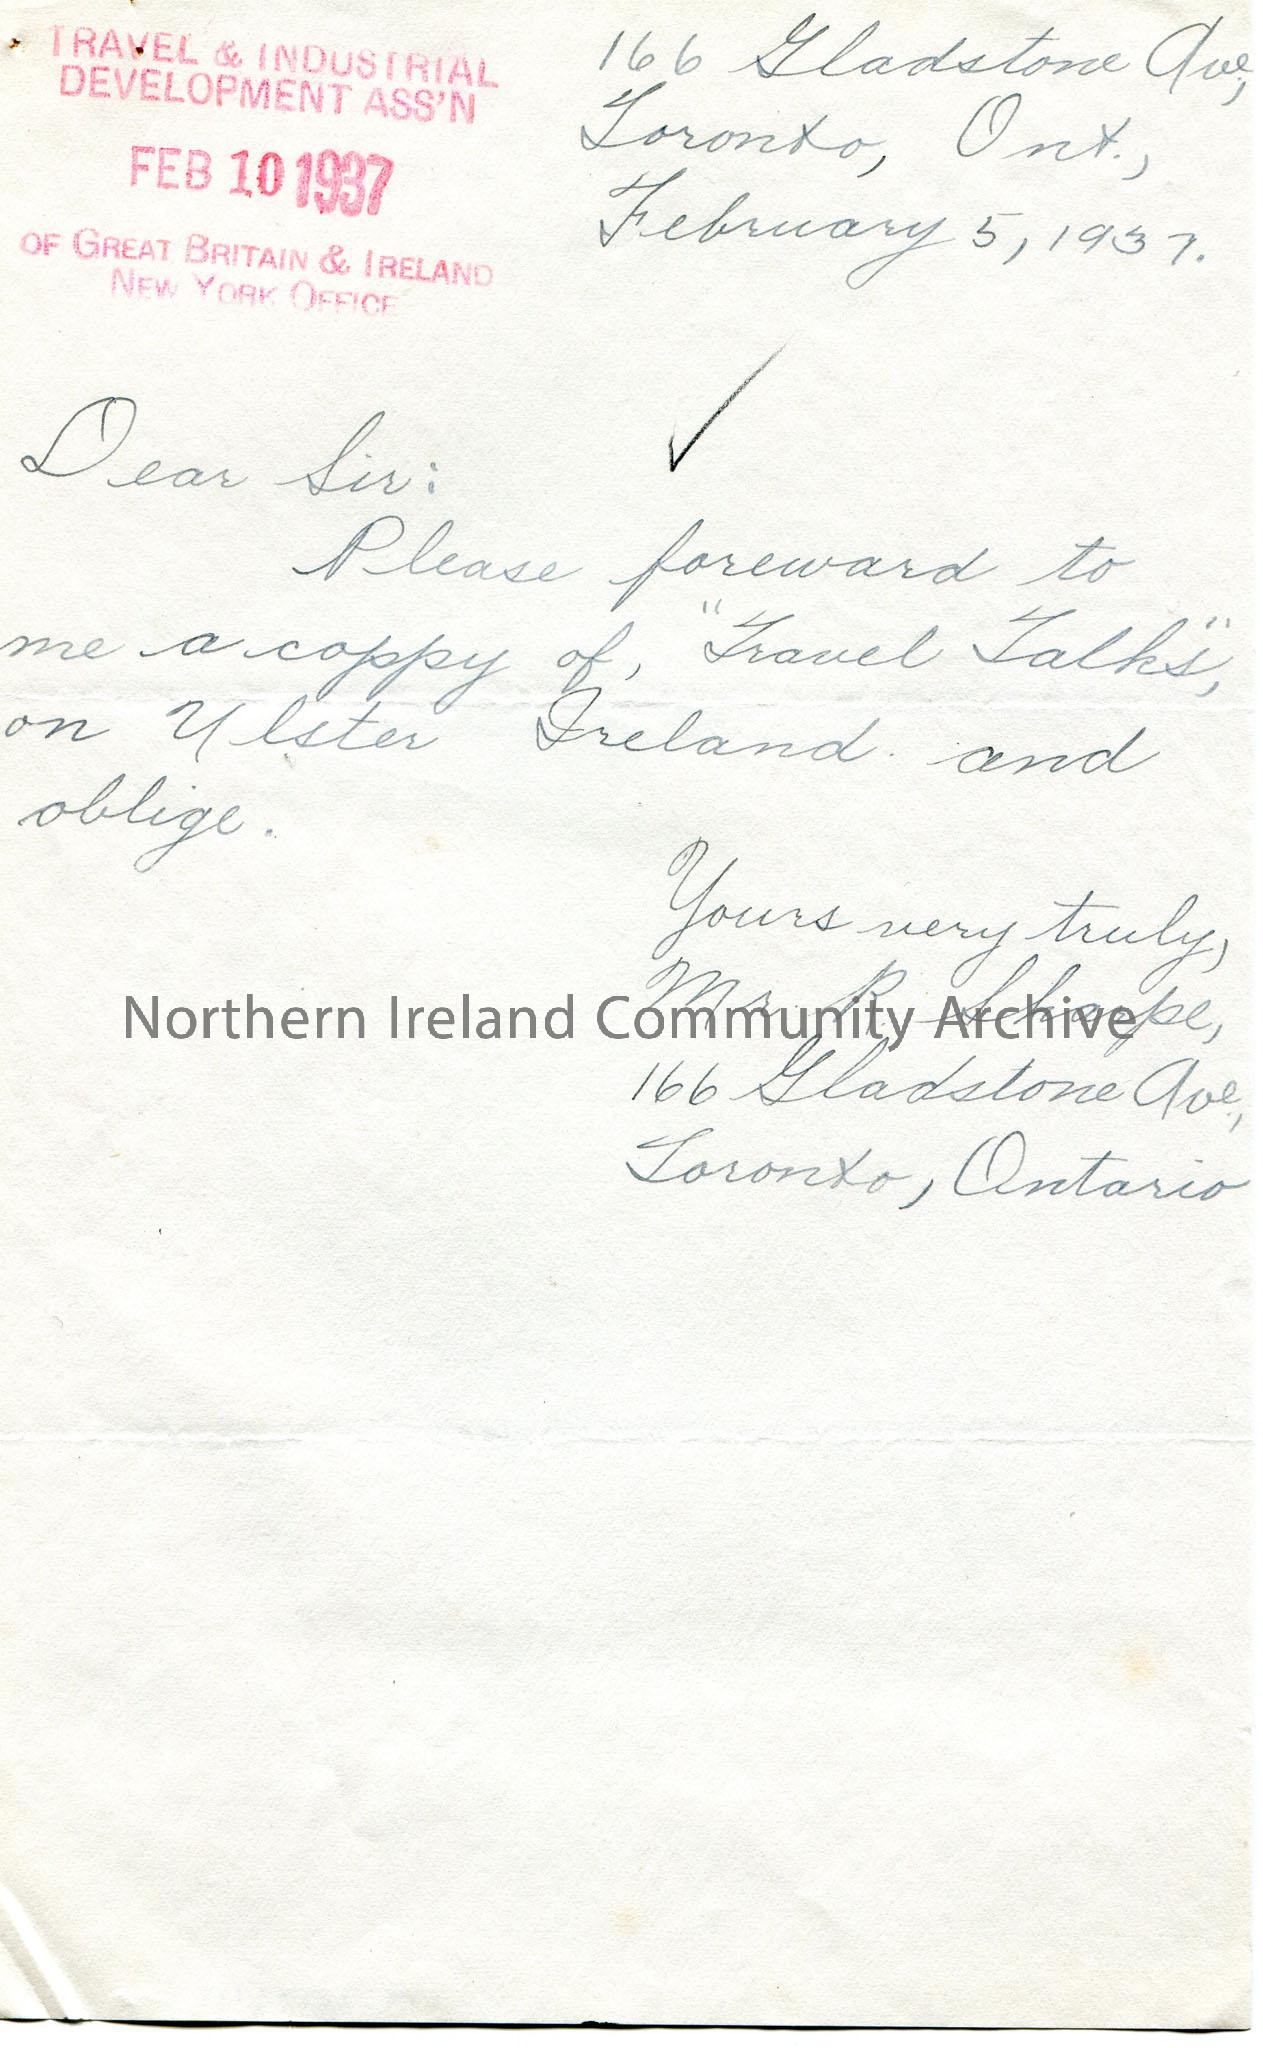 TRAVEL & INDUSTRIAL
DEVELOPMENT ASS'N
FEB 10 1937
OF GREAT BRITAIN & IRELAND
NEW YORK OFFICE
166 Gladstone Ave,
Toronto, Ont.,
February 5, 1937.
Dear Sir:
Please foreward to
me a coppy of, "Travel Talks",
on Ulster Ireland. and
oblige.
Yours very truly,
Mr. R. Sharpe,
Northern Ireland Community Archive
166 Gladstone Ave,
Toronto, Ontario